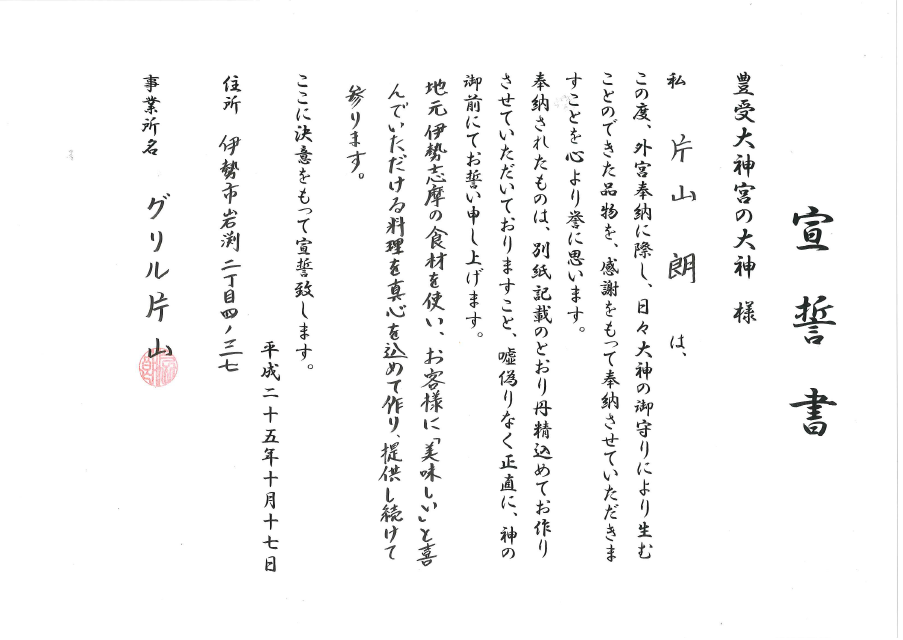 宣誓書
豊受大神宮の大神 様
私 片山 朗 は、
この度、外宮奉納に際し、日々大神の御守りにより生む
ことのできた品物を、感謝をもって奉納させていただきま
すことを心より誉に思います。
奉納されたものは、別紙記載のとおり丹精込めてお作り
させていただいておりますこと、嘘偽りなく正直に、神の
御前にてお誓い申し上げます。
地元伊勢志摩の食材を使い、お客様に「美味しい」と喜
んでいただける料理を真心を込めて作り、提供し続けて
参ります。
ここに決意をもって宣誓致します。
平成二十五年十月十七日
住所 伊勢市岩渕二丁目四ノ三七
事業所名 グリル片山